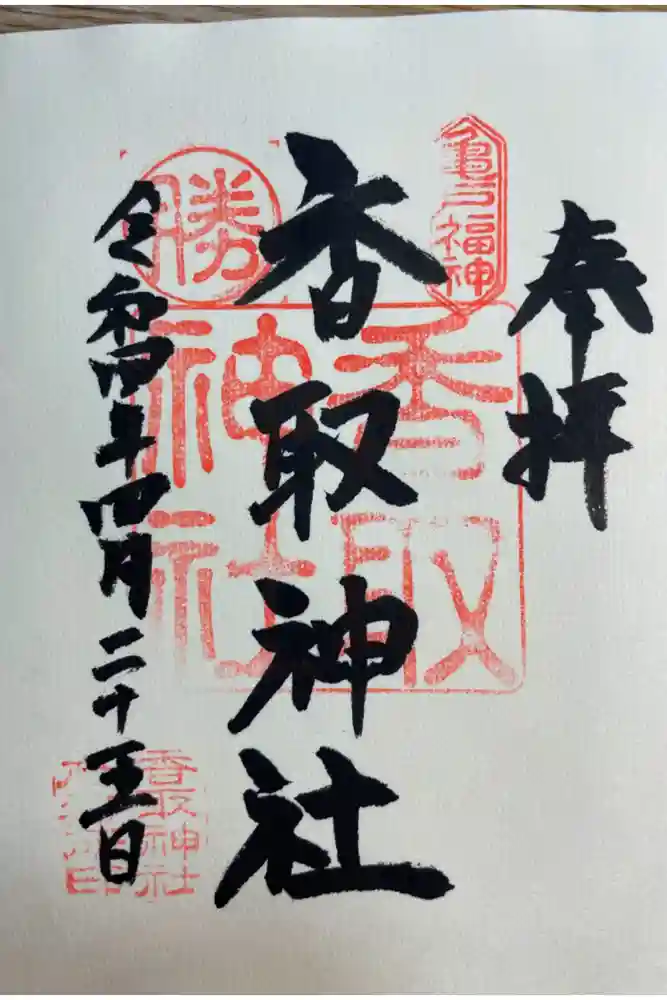 奉拝
亀戸福神
香取神社
香取
神社
勝
令和四年四月二十五日
香取神社